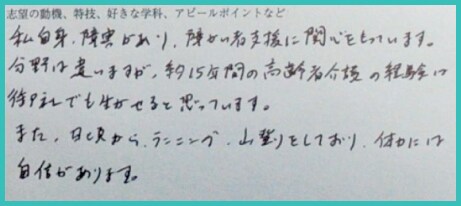 志望の動機、特技、好きな学科、アピールポイントなど
私自身、障害があり、障がい者支援に関心をもっています。
分野は違いますが、約15年間の高齢者介護の経験は
御社でも生かせると思っています。
また、日ごろから、ランニング、山登りをしており、体力には
自信があります。